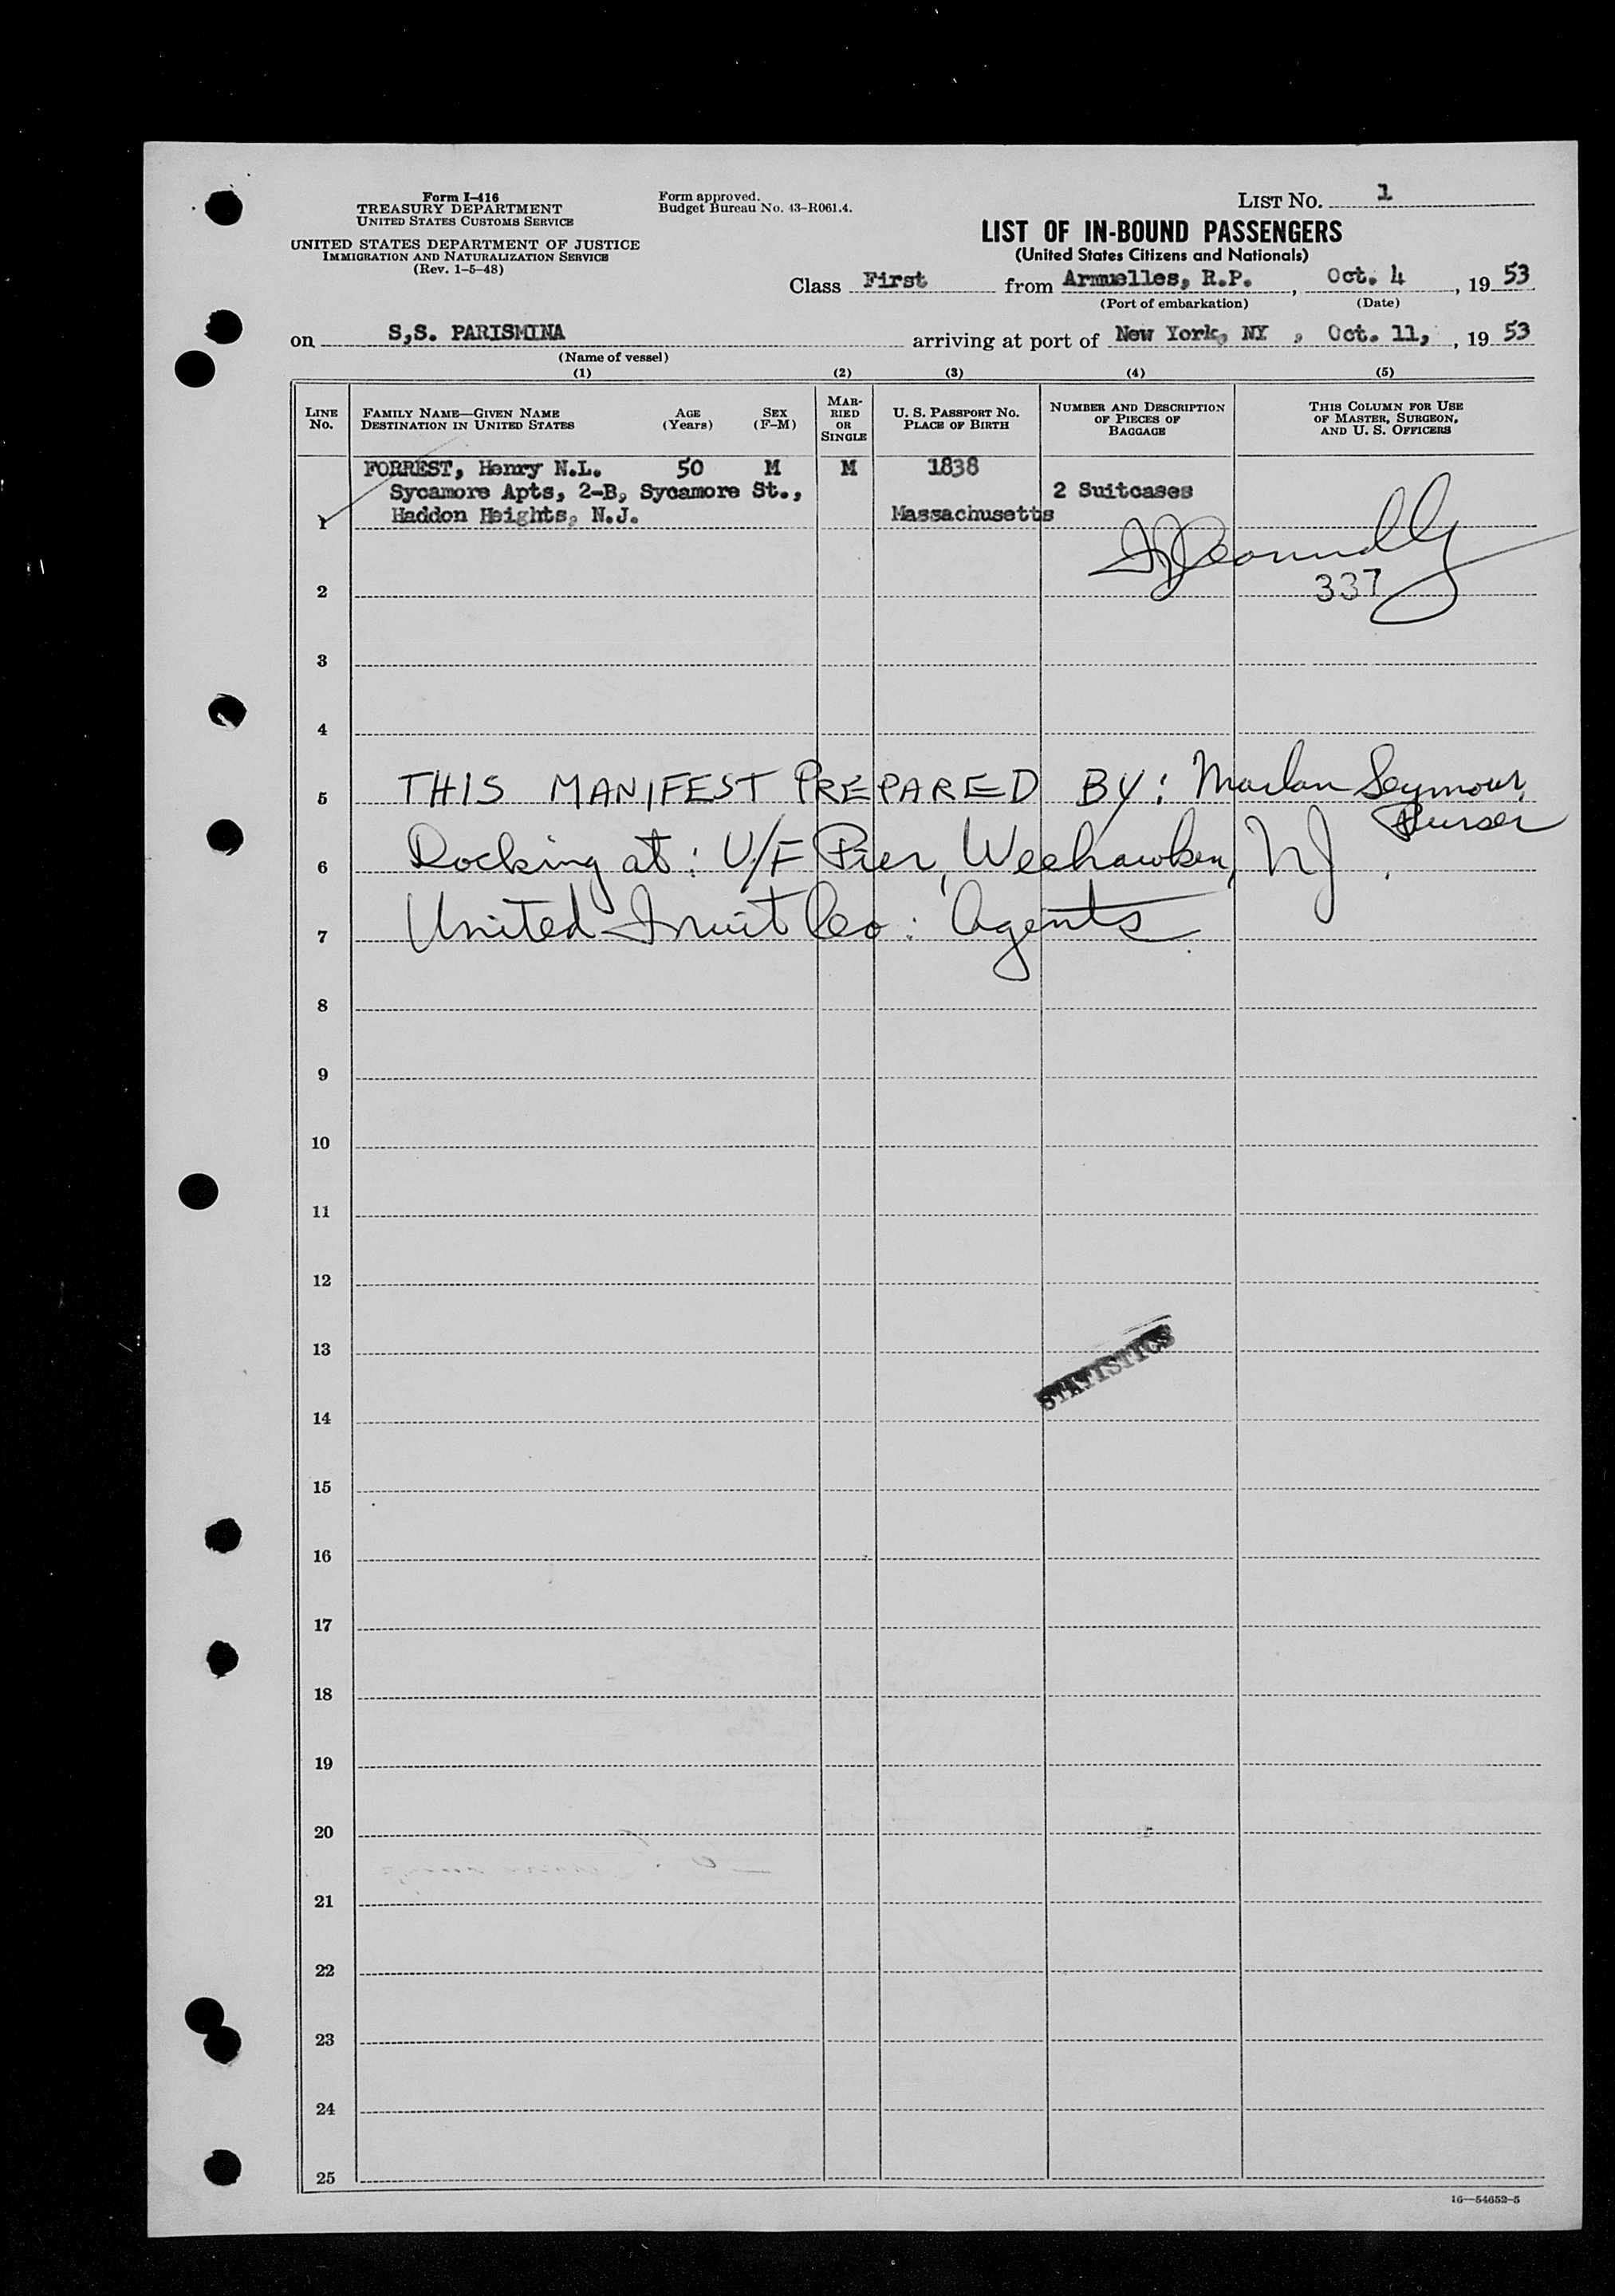 Form I-416
TREASURY DEPARTMENT
UNITED STATES CUSTOMS SERVICE
UNITED STATES DEPARTMENT OF JUSTICE
IMMIGRATION AND NATURALIZATION SERVICE
(Rev. 1-5-48)
Form approved.
Budget Bureau No. 43-R061.4.
LIST NO. 1
LIST OF IN-BOUND PASSENGERS
(United States Citizens and Nationals)
Class First from Armuelles, R.P. , Oct. 4 , 19 53
(Port of embarkation) (Date)
on S,S. PARISMINA arriving at port of New York, NY , Oct. 11, , 19 53
(Name of vessel)
(1) (2) (3) (4) (5)
LINE NO. FAMILY NAME—GIVEN NAME DESTINATION IN UNITED STATES AGE (Years) SEX (F-M) MARRIED OR SINGLE U. S. PASSPORT NO. PLACE OF BIRTH NUMBER AND DESCRIPTION OF PIECES OF BAGGAGE THIS COLUMN FOR USE OF MASTER, SURGEON, AND U. S. OFFICERS
FORREST, Henry N.L. 50 M M 1838
Sycamore Apts, 2-B, Sycamore St., 2 Suitcases
1 Haddon Heights, N.J. Massachusetts
2 337
3
4
5 THIS MANIFEST PREPARED BY: Marlan Seymour,
Purser
6 Docking at: U/F Pier, Weehawken, NJ.
7 United Fruit Co: Agents.
8
9
10
11
12
13
STATISTICS
14
15
16
17
18
19
20
21
22
23
24
25
16—54652-5